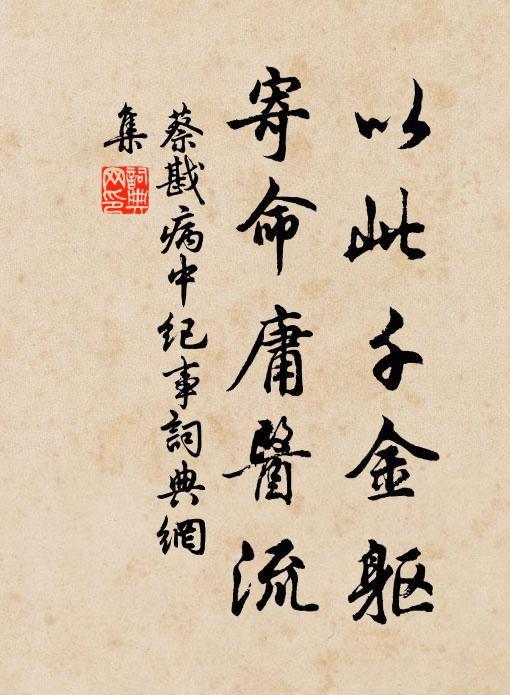 以此千金躯
寄命庸醫流
蔡戡病中纪事詞典網
集
詞典
网印